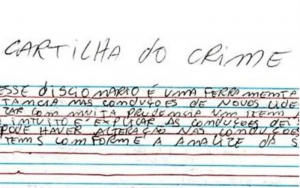 CARTILHA do CRIME
ESSE DISCIONARIO É UMA FERRAMENTA
TANCIA MAS CONDUÇOES DE NOVOS LIDE
ZAR COM MUITA PRUDENCIA UM ITEM A
INTUITO E' EXPLICAR AS CONDUÇOES DEI
PODE HAVER ALTERAÇÃO NAS CONDUÇOE
TEMS CONFORME A ANALIZE DA S